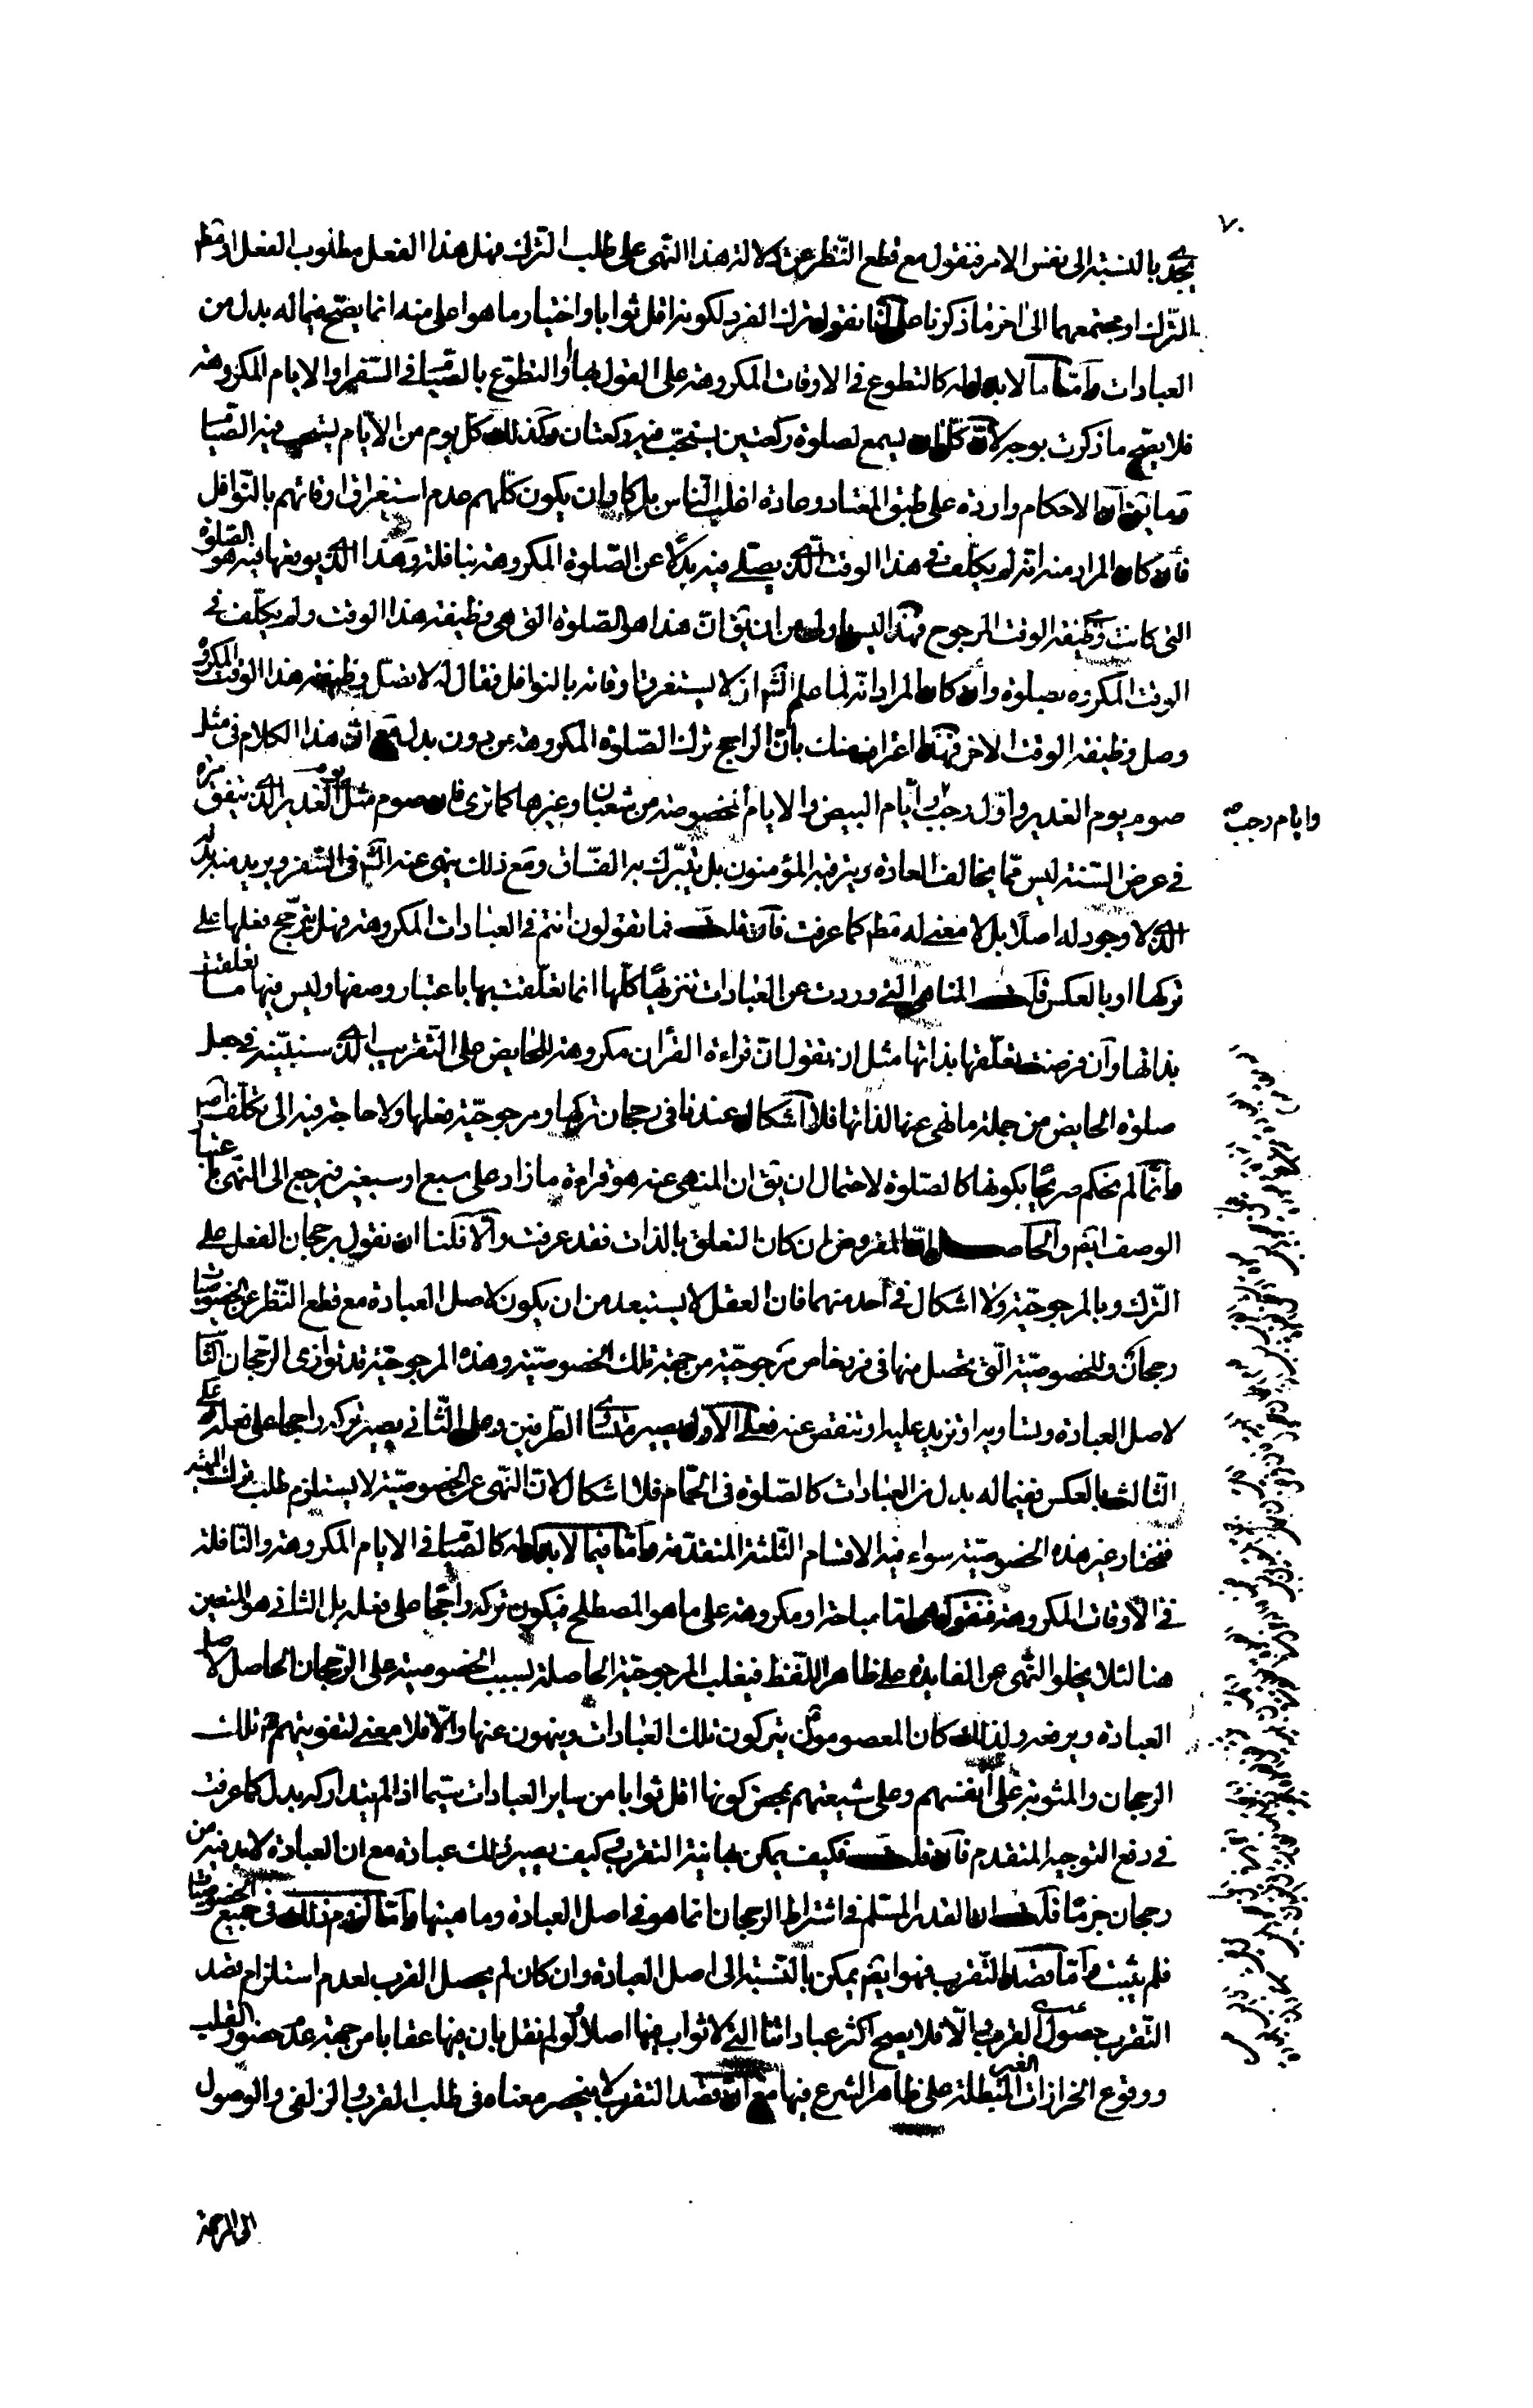 ٧٠
يجدى بالنسبة الى نفس الامر فنقول مع قطع النّظر عن دلالة هذا النّهى على طلب التّرك فهل هذا الفعل مطلوب الفعل او مط
التّرك او مجتمعهما الى اخر ما ذكرنا على انّا نقول ترك الفرد لكونه اقل ثوابا واختيار ما هو اعلى منه انما يصّح فيما له بدل من
العبادات وامّا ما لا بدل له كالتطوع فى الاوقات المكروهة على القول بها والتطوّع بالصّيام فى السّفر او الايام المكروهة
فلا يصّح ما ذكرت بوجه لانّ كلّ ان يسع لصلوة ركعتين يستحّب فيه ركعتان وكذلك كلّ يوم من الايّام يستحب فيه الصّيام
وما يق ان الاحكام واردة على طبق المعتاد وعادة اغلب النّاس بل كاد ان يكون كلّهم عدم استغراق اوقاتهم بالنّوافل
فان كان المراد منه انّه لم يكلّف فى هذا الوقت الّذى يصلّى فيه بدلا عن الصّلوة المكروهة بنافلة وهذا الّذى يوقعها فيه هو الصّلوة
التى كانت وظيفة الوقت المرجوح فهذا ليس باولى من ان يق انّ هذا هو الصّلوة التى هى وظيفة هذا الوقت ولم يكلّف فى
الوقت المكروه بصلوة وان كان المراد انّه لما علم الشّ ان لا يستغرق اوقاته بالنوافل فقال له لا تصّل وظيفة هذا الوقت المكروه
وصل وظيفة الوقت الاخر فهذا اعتراف منك بانّ الراجح ترك الصّلوة المكروهة من دون بدل مع ان هذا الكلام فى مثل
صوم يوم الغدير واوّل رجب وايّام البيض والايام المخصوصة من شعبان وغيرها كما ترى فان صوم مثل يوم الغدير الّذى يتفق مرّة
وايام رجب صح
فى عرض السّنة ليس ممّا يخالف العادة ويترقبه المؤمنون بل يتبّرك به الفسّاق ومع ذلك ينهى عنه الشّ فى السّفر ويريد منه بدله
الّذى لا وجود له اصلا بل لا معنى له مط كما عرفت فان قلت فما تقولون انتم فى العبادات المكروهة فهل يترجّح فعلها على
تركها او بالعكس قلت المناهى التى وردت عن العبادات تنزيها كلّها انما تعلّقت بها باعتبار وصفها وليس فيها ما تعلقت
بذاتها وان فرضت تعلّقها بذاتها مثل ان يقول انّ قراءة القرآن مكروهة للحايض على التقريب الّذى سنبيّنه فى جعل
صلوة الحايض من جملة ما نهى عنها لذاتها فلا اشكال عندنا فى رجحان تركها ومرجوحيّة فعلها ولا حاجة فيه الى تكلّف اصلا
وانّما لم نحكم صريحا بكونها كالصّلوة لاحتمال ان يق ان المنهى عنه هو قراءة ما زاد على سبع او سبعين فيرجع الى النّهى عنها
الوصف ايض والحاصل انّ المفروض ان كان التعلق بالذات فقد عرفت والّا فلنا ان نقول برجحان الفعل على
التّرك وبالمرجوحيّة ولا اشكال فى احد منهما فان العقل لا يستبعد من ان يكون لاصل العبادة مع قطع النّظر عن الخصوصيات
رجحان وللخصوصيّة الّتى تحصل منها فى فرد خاص مرجوحيّة من جهة تلك الخصوصيّة وهذه المرجوحيّة قد توازى الرّجحان الثا
لاصل العبادة وتساويه او تزيد عليه او تنقص عنه فعلى الاوّل يصير متساوى الطّرفين وعلى الثّانى يصير تركه راجحا على فعله وعلى
الثّالث بالعكس ففيما له بدل من العبادات كالصّلوة فى الحمّام فلا اشكال لانّ النّهى عن الخصوصيّة لا يستلزم طلب ترك المهيّة
فنختار غير هذه الخصوصيّة سواء فيه الاقسام الثّلثة المتقدّمة وامّا فيما لا بدل له كالصّيام فى الايام المكروهة والنّافلة
فى الاوقات المكروهة فنقول هى امّا مباحة او مكروهة على ما هو المصطلح فيكون تركه راجحا على فعله بل الثانى هو المتعين
هنا لئلا يخلو النّهى عن الفايدة على ظاهر اللّفظ فيغلب المرجوحيّة الحاصلة بسبب الخصوصيّة على الرّجحان الحاصل لاصل
العبادة ويرفعه ولذلك كان المعصومون يتركون تلك العبادات وينهون عنها والّا فلا معنى لتفويتهم تلك
الرجحان والمثوبة على انفسهم وعلى شيعتهم بمحض كونها اقل ثوابا من ساير العبادات سيّما اذا لم يتداركه بدل كما عرفت
فى دفع التوجيه المتقدم فان قلت فكيف يمكن هنا نيّة التقرب وكيف يصير ذلك عبادة مع ان العبادة لا بد فيه من
رجحان جزما قلت ان القدر المسّلم فى اشتراط الرجحان انما هو فى اصل العبادة وماهيّتها وامّا لزوم ذلك فى جميع الخصوصيات
فلم يثبت وامّا قصد التّقرب فهو ايض يمكن بالنّسبة الى اصل العبادة وان كان لم يحصل القرب لعدم استلزام قصد
التّقرب حصول القرب والّا فلا يصح اكثر عباداتنا الّتى لا ثواب فيها اصلا لو لم نقل بان فيها عقابا من جهة عدم حضور القلب
ووقوع الخرازات الغير المبطلة على ظاهر الشرع فيها مع ان قصد التقرب لا ينحصر معناه فى طلب القرب والزلفى والوصول
الى الرحمة